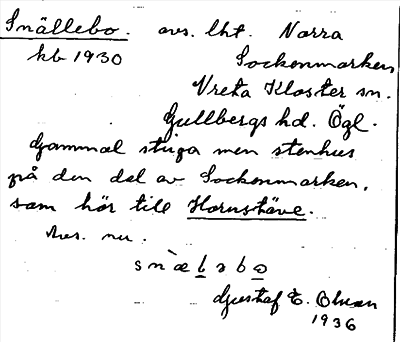 Snällebo. avs. lht. Norra
kb 1930 Sockenmarken
Vreta Kloster sn.
Gullbergs hd. Ögl.
Gammal stuga men stenhus
på den del av Sockenmarken,
som hör till Hornstäve.
Avs. nu.
snæ̀ḷəbə̠
Gustaf E. Olsson
1936